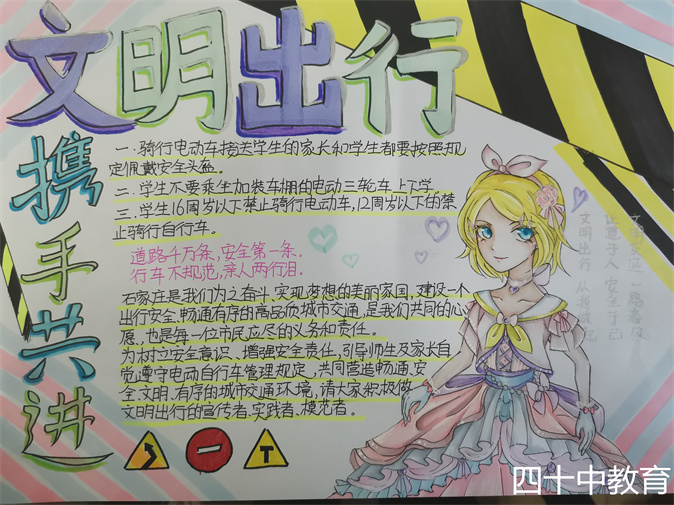 文明出行
携手共进
一.骑行电动车接送学生的家长和学生都要按照规
定佩戴安全头盔。
二.学生不要乘坐加装车棚的电动三轮车上下学。
三.学生16周岁以下禁止骑行电动车,12周岁以下的禁
止骑行自行车。
道路千万条,安全第一条.
行车不规范,亲人两行泪.
石家庄是我们为之奋斗.实现梦想的美丽家园,建设一个
出行安全.畅通有序的高品质城市交通,是我们共同的心
愿,也是每一位市民应尽的义务和责任。
为树立安全意识、增强安全责任,引导师生及家长自
觉遵守电动自行车管理规定,共同营造畅通.安
全.文明.有序的城市交通环境,请大家积极做
文明出行的宣传者.实践者.模范者。
文明出行 从我
四十中教育